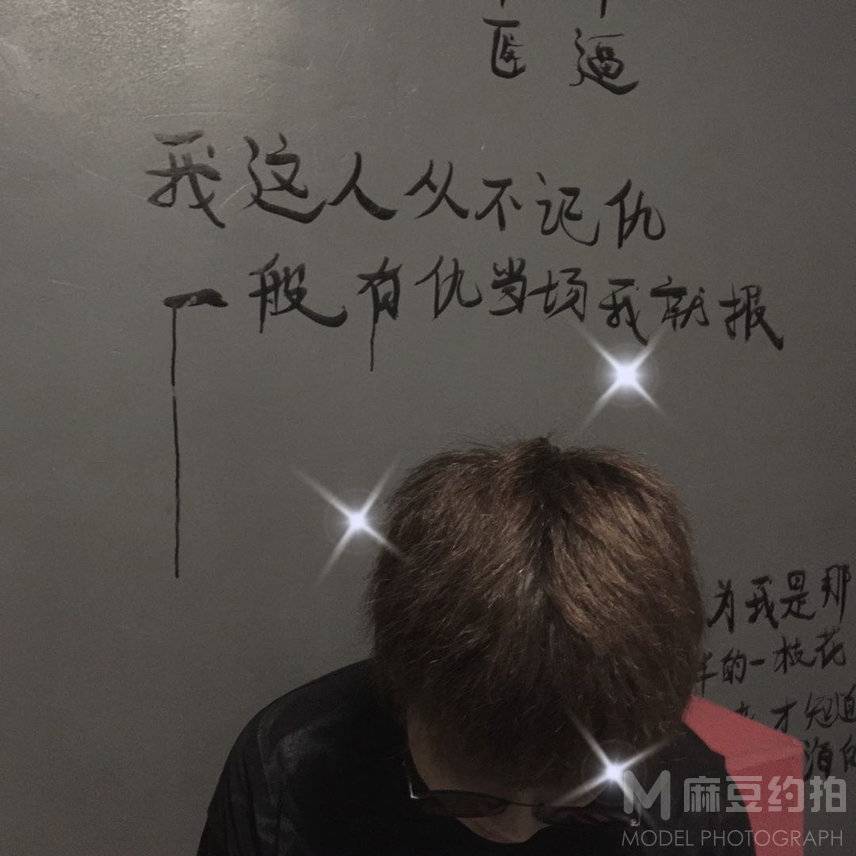 医 逼
我这人从不记仇
一般有仇当场我就报
为我是那
的一枝花
才知道
酒
麻豆约拍
MODEL PHOTOGRAPH